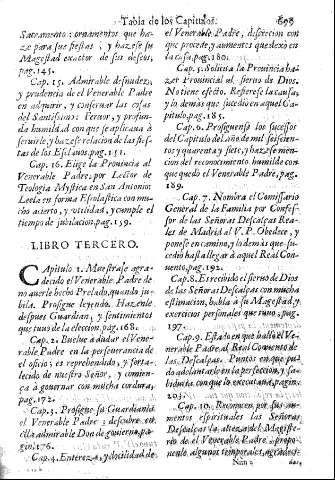 Tabla de los Capitulos.
Sacramento: ornamentos que haze para sus fiestas, y hazese su
Magestad exactor de sus deseos,
pag. 145.
Cap. 15. Admirable desnudez,
y prudencia de el Venerable Padre
en adquirir, y conservar las cosas
del Santissimo: Fervor, y profunda humildad con que se aplicava à
servirle, y hazese relacion de las fiestas de los Esclavos. pag. 151.
Cap. 16. Elige la Provincia al
Venerable Padre por Lector de
Teologia Mystica en San Antonio:
Leela en forma Escolastica con mucho acierto, y utilidad, y cumple el
tiempo de jubilacion. pag. 159.
LIBRO TERCERO.
Capitulo 1. Muestrase agradecido el Venerable Padre de
no averle hecho Prelado, quando jubila. Prosigue leyendo. Hazenle
despues Guardian, y sentimientos
que tuvo de la eleccion. pag. 168.
Cap. 2. Buelve a dudar el Venerable Padre en la perseverancia de
el oficio; es reprehendido, y fortalecido de nuestro Señor, y comiença à governar con mucha cordura,
pag. 172.
Cap. 3. Prosigue su Guardiania
el Venerable Padre; descubre en
ella admirable Don de govierno. pagin. 176.
Cap. 4. Entereza, y docilidad de
el Venerable Padre, discrecion con
que procede, y aumentos que dexò en
la casa. pag. 180.
Cap. 5. Solicita la Provincia hazer Provincial al siervo de Dios.
No tiene efecto. Referese la causa,
y lo demàs que sucediò en aquel Capitulo. pag. 185.
Cap. 6. Prosiguense los sucessos
del Capitulo del año de mil seiscientos y quarenta y siete, y hazese mencion del reconocimiento humilde con
que quedò el Venerable Padre. pag.
189.
Cap. 7. Nombra el Comissario
General de la Familia por Confessor de las Señoras Descalças Reales de Madrid al V. P. Obedece, y
ponese en camino, y lo demàs que sucediò hasta llegar à aquel Real Convento. pag. 192.
Cap. 8. Es recibido el siervo de Dios
de las Señoras Descalças con mucha
estimacion, habla à su Magestad, y
exercicios personales que tuvo, pag.
197.
Cap. 9. Estado en que hallò el Venerable Padre al Real Convento de
las Descalças. Puntos en que pudo adelantarlo en la perfeccion, y sabiduria con que lo executò. pagin.
203.
Cap. 10. Reconocen por sus aumentos espirituales las Señoras
Descalças la alteza del Magisterio de el Venerable Padre, proponenle algunos temporales, agradece-